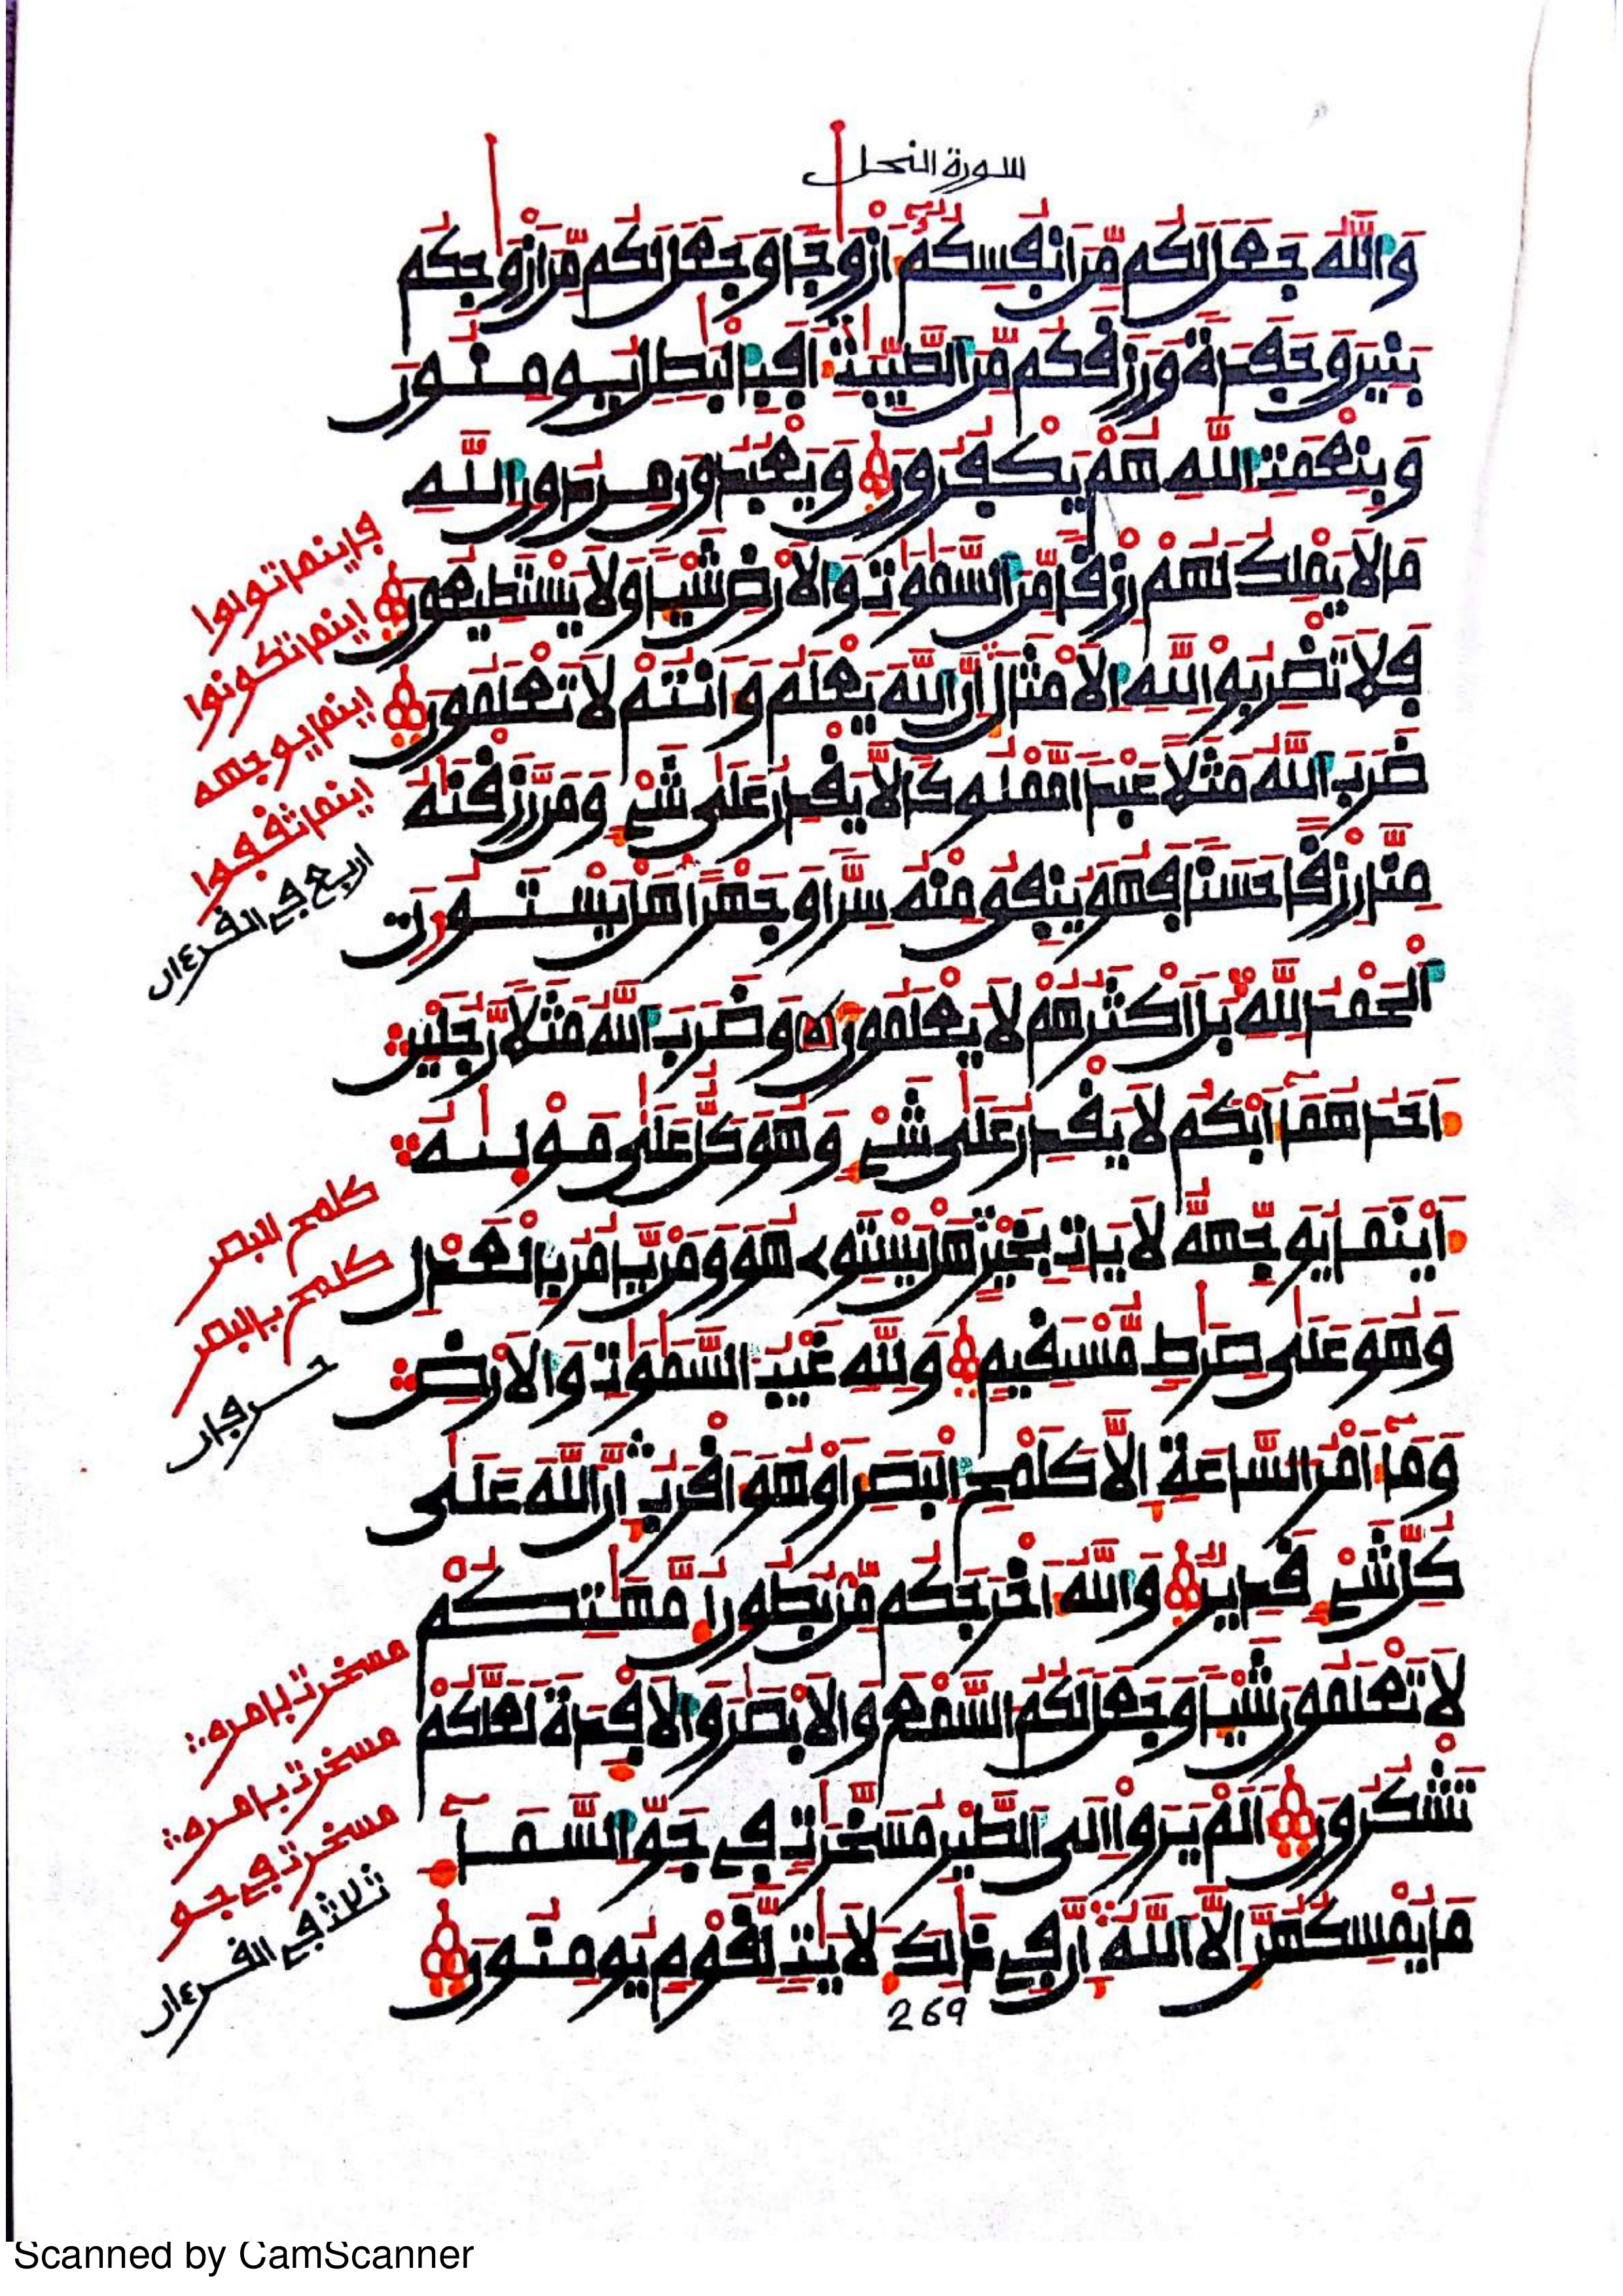 سورة النحل
وَاللَّهُ جَعَلَ لَكُم مِّنَ انفُسِكُمُ أَزْوَٰجًا وَجَعَلَ لَكُم مِّنَ ازْوَٰجِكُم
بَنِينَ وَحَفَدَةً وَرَزَقَكُم مِّنَ الطَّيِّبَٰتِ أَفَبِالْبَٰطِلِ يُومِنُونَ
وَبِنِعْمَتِ اللَّهِ هُمْ يَكْفُرُونَ وَيَعْبُدُونَ مِن دُونِ اللَّهِ
مَا لَا يَمْلِكُ لَهُمْ رِزْقًا مِّنَ السَّمَٰوَٰتِ وَالَارْضِ شَيْـًٔا وَلَا يَسْتَطِيعُونَ
فَلَا تَضْرِبُوا لِلَّهِ الَامْثَالَ إِنَّ اللَّهَ يَعْلَمُ وَأَنتُمْ لَا تَعْلَمُونَ
ضَرَبَ اللَّهُ مَثَلًا عَبْدًا مَّمْلُوكًا لَّا يَقْدِرُ عَلَىٰ شَيْءٍ وَمَن رَّزَقْنَٰهُ
مِنَّا رِزْقًا حَسَنًا فَهُوَ يُنفِقُ مِنْهُ سِرًّا وَجَهْرًا هَلْ يَسْتَوُونَ
اَلْحَمْدُ لِلَّهِ بَلَ اَكْثَرُهُمْ لَا يَعْلَمُونَ وَضَرَبَ اللَّهُ مَثَلًا رَّجُلَيْنِ
أَحَدُهُمَا أَبْكَمُ لَا يَقْدِرُ عَلَىٰ شَيْءٍ وَهُوَ كَلٌّ عَلَىٰ مَوْلَىٰهُ
أَيْنَمَا يُوَجِّههُّ لَا يَاتِ بِخَيْرٍ هَلْ يَسْتَوِي هُوَ وَمَن يَّامُرُ بِالْعَدْلِ
وَهُوَ عَلَىٰ صِرَٰطٍ مُّسْتَقِيمٍ وَلِلَّهِ غَيْبُ السَّمَٰوَٰتِ وَالَارْضِ
وَمَا أَمْرُ السَّاعَةِ إِلَّا كَلَمْحِ الْبَصَرِ أَوْ هُوَ أَقْرَبُ إِنَّ اللَّهَ عَلَىٰ
كُلِّ شَيْءٍ قَدِيرٌ وَاللَّهُ أَخْرَجَكُم مِّن بُطُونِ أُمَّهَٰتِكُمْ
لَا تَعْلَمُونَ شَيْـًٔا وَجَعَلَ لَكُمُ السَّمْعَ وَالَابْصَٰرَ وَالَافْـِٕدَةَ لَعَلَّكُمْ
تَشْكُرُونَ أَلَمْ يَرَوِا الَى الطَّيْرِ مُسَخَّرَٰتٍ فِي جَوِّ السَّمَاءِ
مَا يُمْسِكُهُنَّ إِلَّا اللَّهُ إِنَّ فِي ذَٰلِكَ لَأٓيَٰتٍ لِّقَوْمٍ يُومِنُونَ
269
فاينما تولوا
اينما تكونوا
اينما يوجهه
اينما ثقفوا
اربع في القرءان
كلمح البصر
كلمح بالبصر
حرفان
مسخرت بامره
مسخرت بامره
مسخرت في جو
ثلاث في القرءان
Scanned by CamScanner